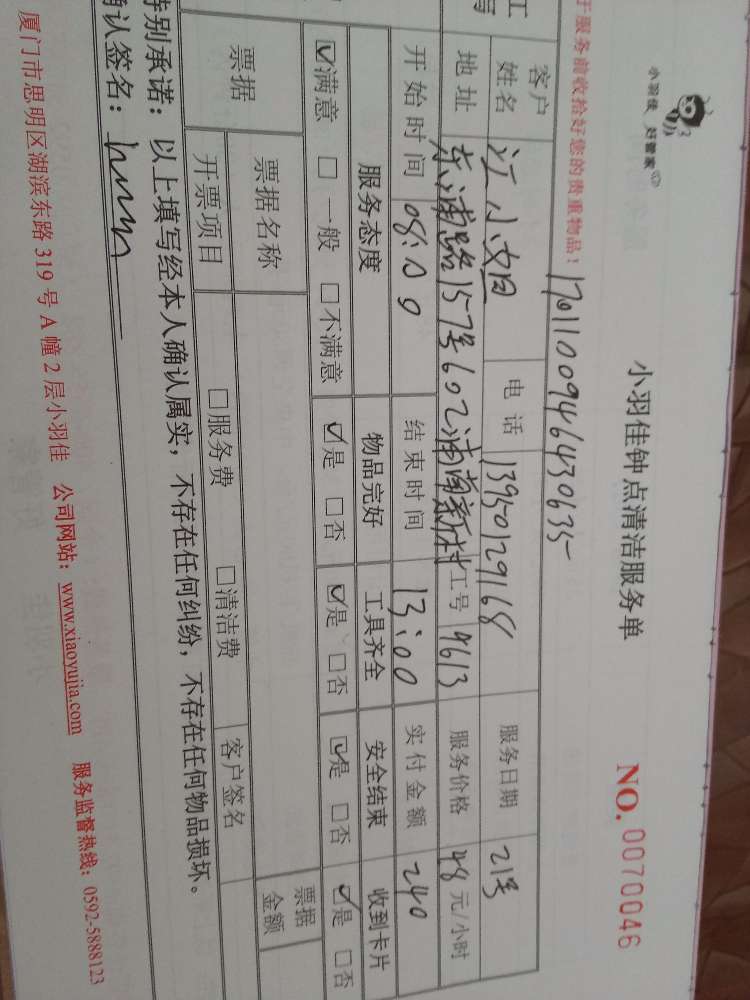 小羽佳 好管家
小羽佳钟点清洁服务单
NO. 0070046
于服务前收拾好您的贵重物品！
1701100946430635
客户姓名 江小姐 电话 13950129168 服务日期 21号
地址 东浦路157号602浦南新村 工号 9613 服务价格 48 元/小时
开始时间 08:00 结束时间 13:00 实付金额 240
服务态度 物品完好 工具齐全 安全结束 收到卡片
☑满意 □一般 □不满意 ☑是 □否 ☑是 □否 ☑是 □否 ☑是 □否
票据 票据名称 票据金额
开票项目 □服务费 □清洁费 客户签名
特别承诺：以上填写经本人确认属实，不存在任何纠纷，不存在任何物品损坏。
确认签名：
厦门市思明区湖滨东路 319 号 A 幢 2 层小羽佳 公司网站：www.xiaoyujia.com 服务监督热线：0592-5888123